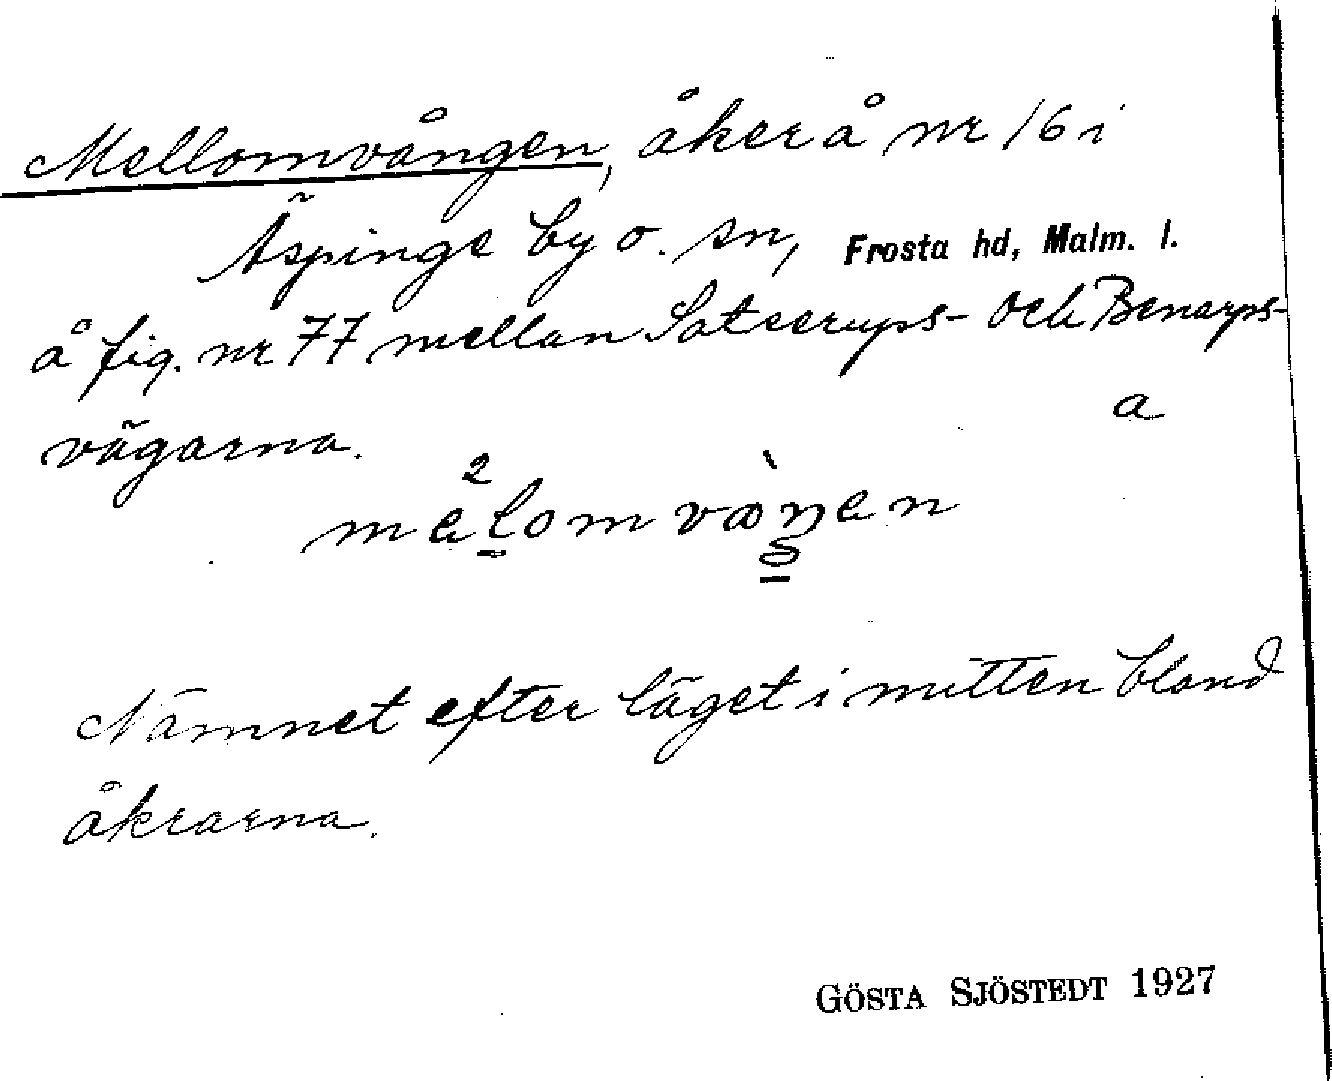 Mellomvången, åker å nr 16 i
Äspinge by o. sn, Frosta hd, Malm. l.
å fig. nr 77 mellan Satserups- och Benarps-
vägarna.
a
Nämnet efter läget i mitten bland
åkrarna.
GÖSTA SJÖSTEDT 1927